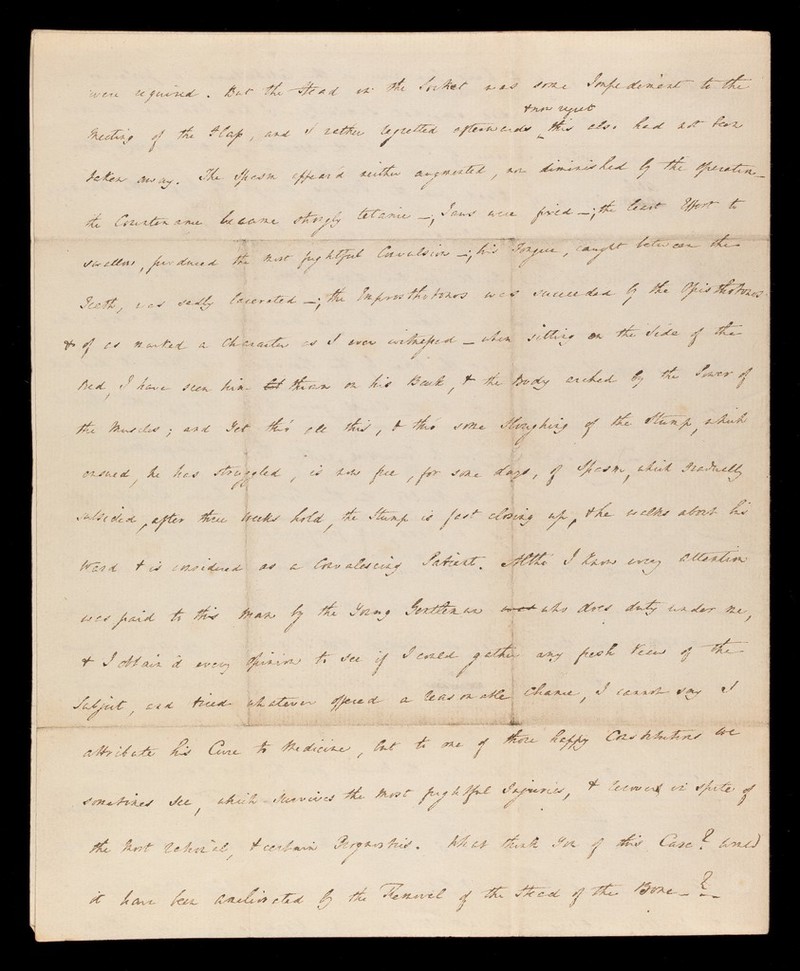 were required. But the Head in the Socket was some Impediment to the
& now regret
meeting of the Flap, and I rather regretted afterwards this also had not been
taken away. The Spasm appear'd neither augmented, nor diminished by the operation_
the Countenance became strongly tetanic _; Jaws were fixed _; the least Effort to
swallow, produced the most frightful Convulsion _; his Tongue, caught between the
Teeth, was sadly lacerated _; the Emprosthotonos was succeeded by the Opisthotonos
& of as marked a Character as I ever witnessed _ when sitting on the side of the
Bed, I have seen him thrown on his Back, & the Body arched by the Power of
the Muscles; and Yet tho' all this, & tho' some Sloughing of the Stump, which
ensued, he has struggled, is now free, for some days, of Spasm, which gradually
subsided, after three weeks hold, the Stump is fast closing up, & he walks about his
Ward & is considered as a Convalescing Patient. Altho' I know every attention
was paid to this Man by the Young Gentleman who does duty under me,
& I obtain'd every opinion to see if I could gather any fresh View of the
Subject, and tried whatever offered a reasonable Chance, I cannot say I
attribute his Cure to Medicine, but to one of those happy Constitutions we
sometimes see, which survives the most frightful Injuries, & recovers in spite of
the most rational, & certain Prognosis. What think You of this Case? would
it have been ameliorated by the Removal of the Head of the Bone_?_